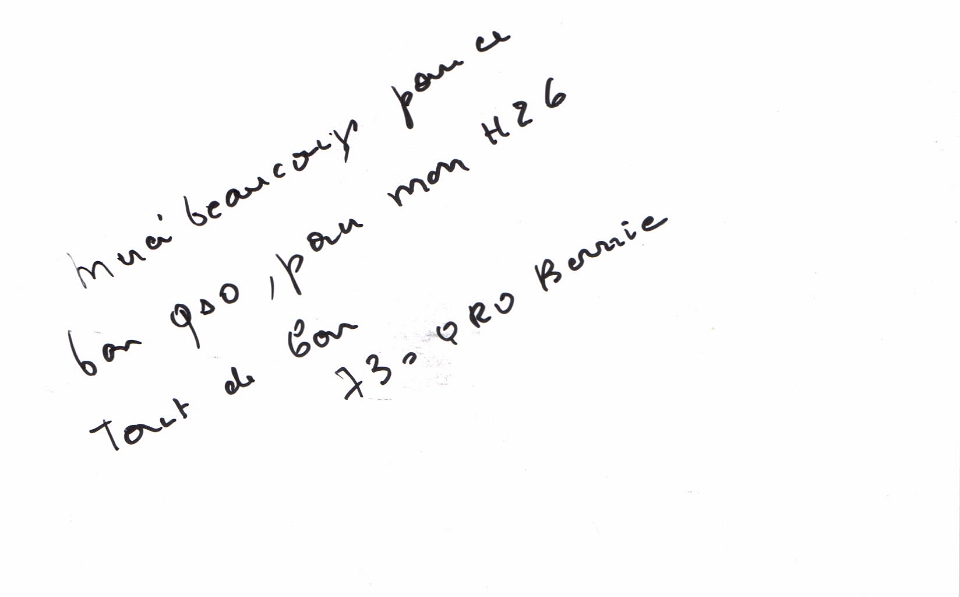 Merci beaucoup pour ce
bon QSO, pour mon H26
Tout de bon
73 = QRO Bernie